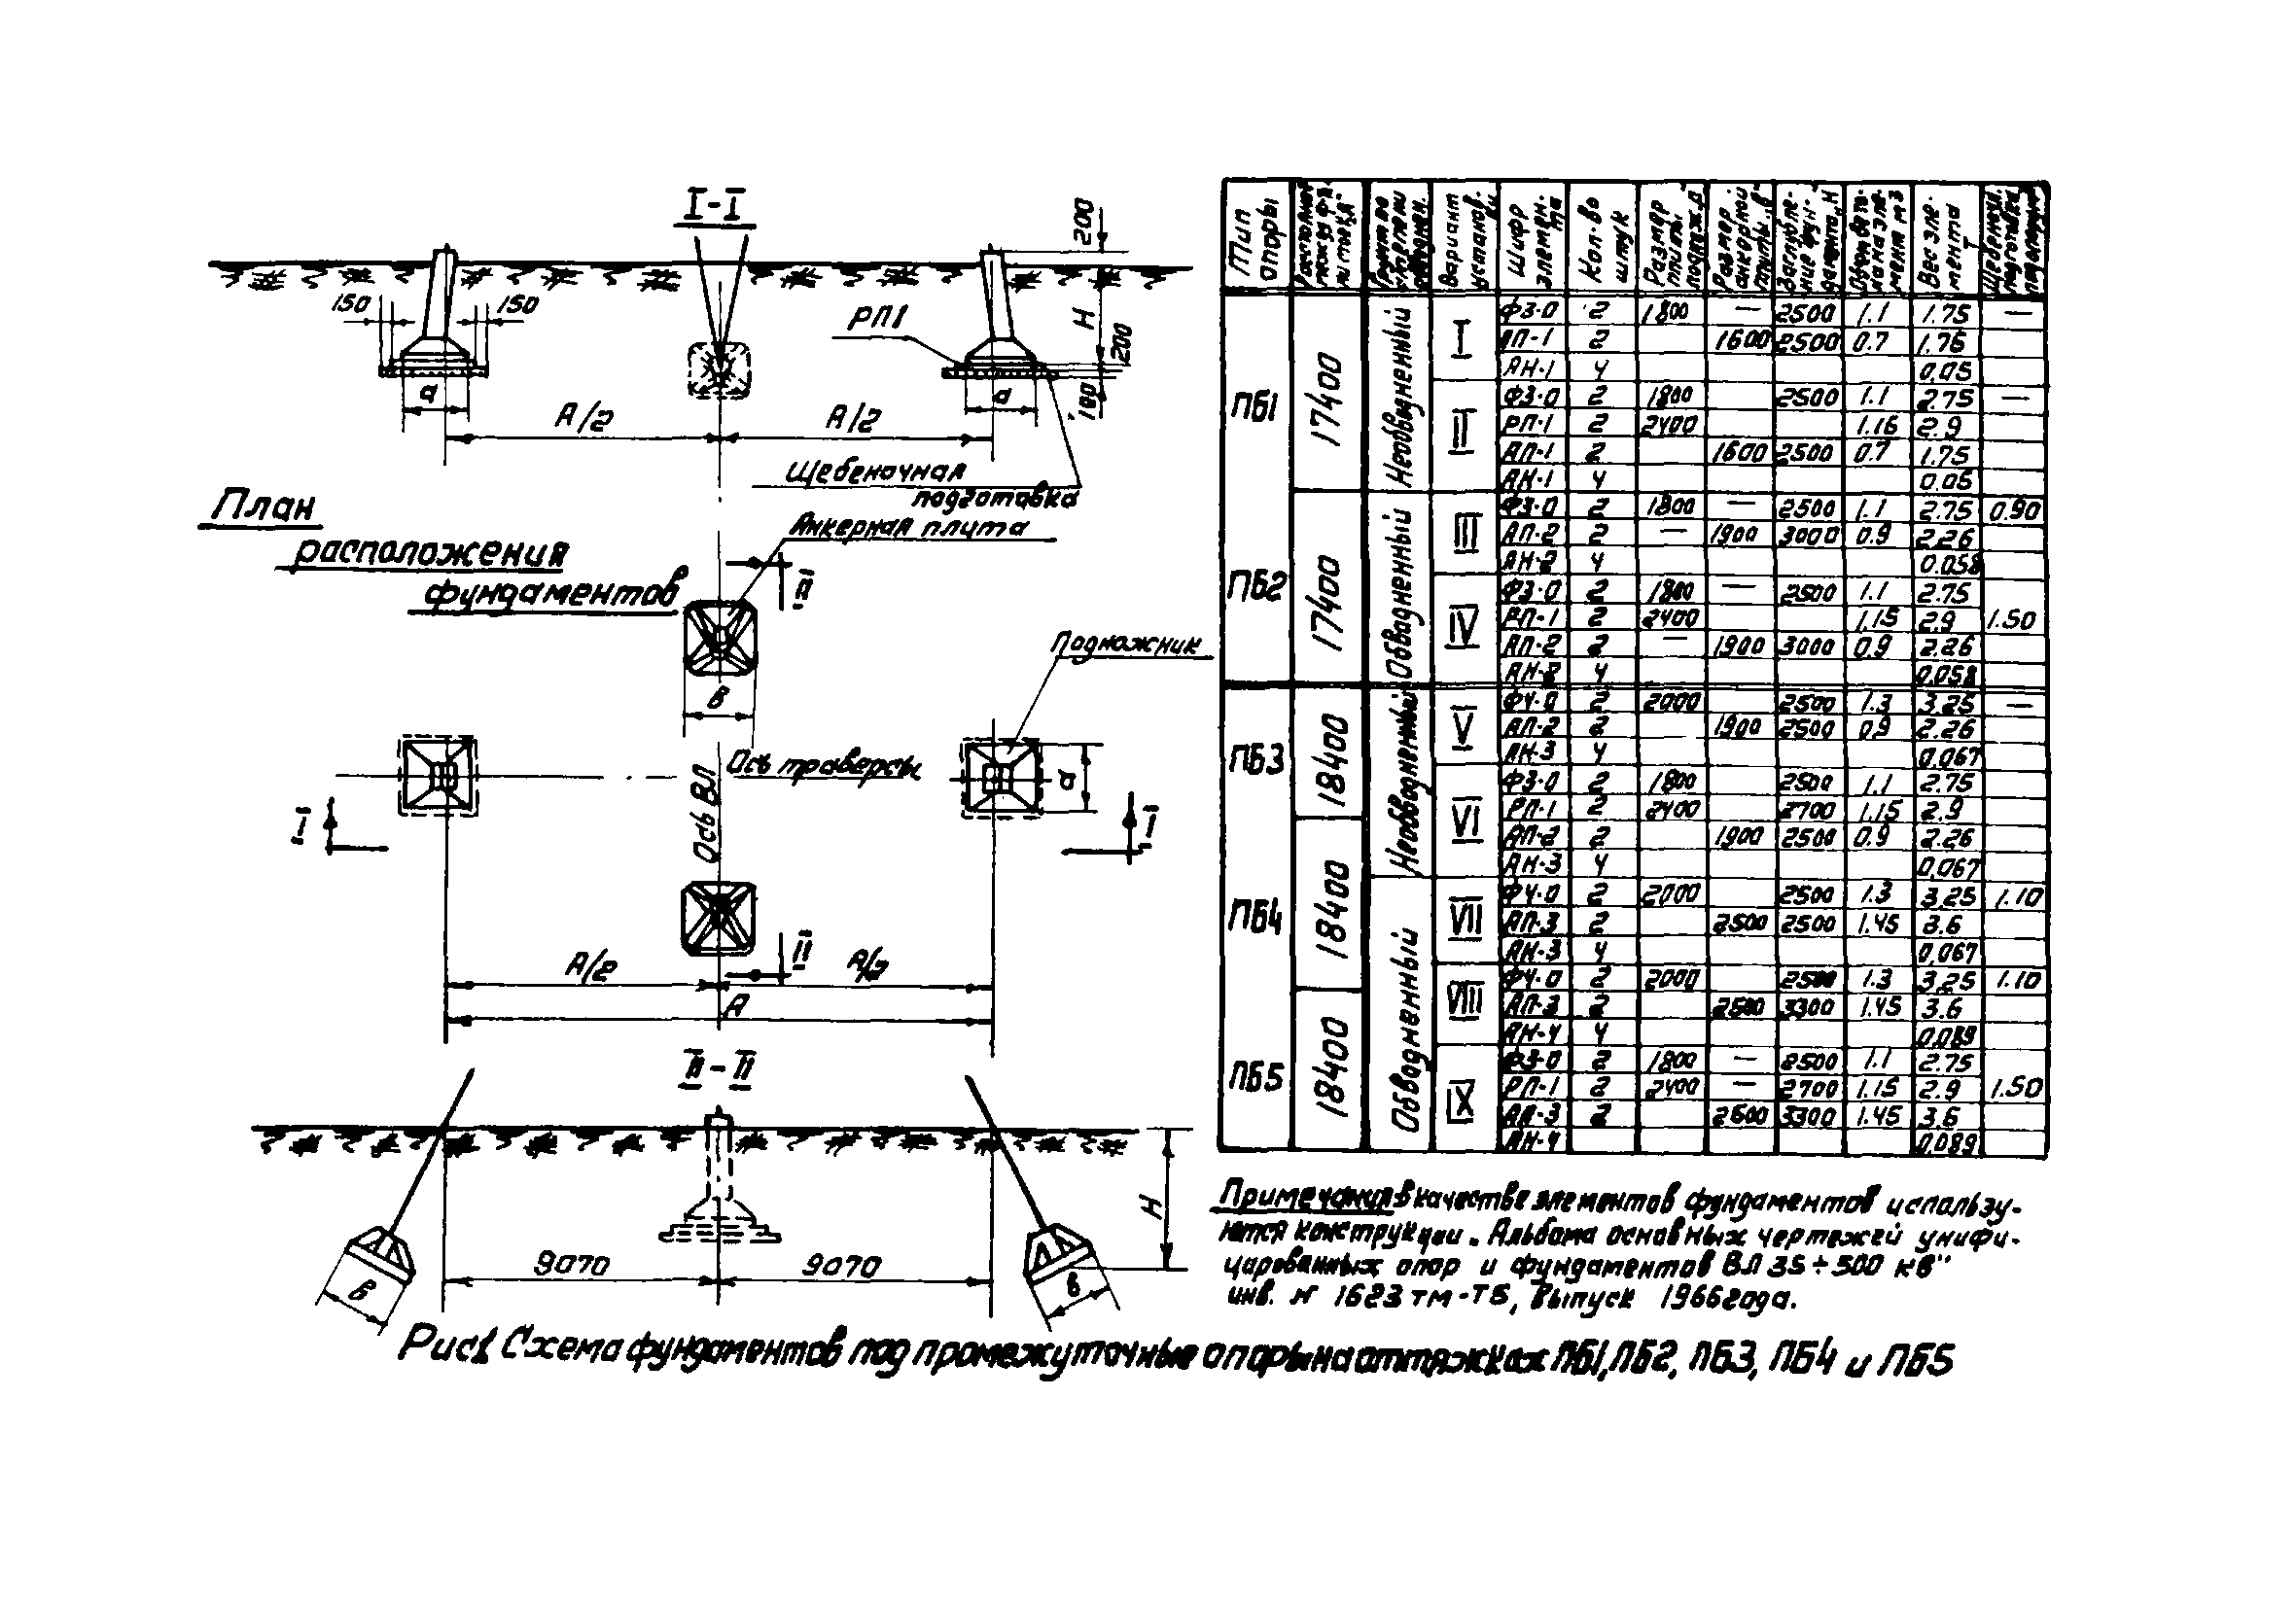 I-I
200
150
150
РП1
Н
200
100
а
а
А/2
А/2
Щебеночная
подготовка
План
расположения
фундаментов
Анкерная плита
II
Подножник
В
Ось траверсы
Ось ВЛ
а
I
I
II
А/2
А/2
А
II-II
Н
9070
9070
В
в
Тип опоры
Вариант
Шифр элемен-та
Кол-во штук
Размер плиты
Размер анкорной плиты „в"
Вес эле-мента Т
ПБ1 17400 Необводненный
I
Ф3-0 2 1800 — 2500 1.1 1.75 —
АП-1 2 1600 2500 0.7 1.76
АН-1 4 0.05
II
Ф3-0 2 1800 2500 1.1 2.75 —
РП-1 2 2400 1.16 2.9
АП-1 2 1600 2500 0.7 1.75
АН-1 4 0.05
ПБ2 17400 Обводненный
III
Ф3-0 2 1800 — 2500 1.1 2.75 0.90
АП-2 2 — 1900 3000 0.9 2.26
АН-2 4 0.058
IV
Ф3-0 2 1800 — 2500 1.1 2.75
РП-1 2 2400 1.15 2.9 1.50
АП-2 2 — 1900 3000 0.9 2.26
АН-2 4 0.058
ПБ3 18400 Необводненный
V
Ф4-0 2 2000 2500 1.3 3.25 —
АП-2 2 1900 2500 0.9 2.26
АН-3 4 0.067
VI
Ф3-0 2 1800 2500 1.1 2.75
РП-1 2 2400 2700 1.15 2.9
АП-2 2 1900 2500 0.9 2.26
АН-3 4 0.067
ПБ4 18400 Обводненный
VII
Ф4-0 2 2000 2500 1.3 3.25 1.10
АП-3 2 2500 2500 1.45 3.6
АН-3 4 0.067
VIII
Ф4-0 2 2000 2500 1.3 3.25 1.10
АП-3 2 2500 3300 1.45 3.6
АН-4 4 0.089
ПБ5 18400
IX
Ф3-0 2 1800 — 2500 1.1 2.75
РП-1 2 2400 — 2700 1.15 2.9 1.50
АП-3 2 2600 3300 1.45 3.6
АН-4 0.089
Примечания: в качестве элементов фундаментов использу-
ются конструкции „Альбома основных чертежей унифи-
цированных опор и фундаментов ВЛ 35÷500 кв"
инв. № 1623 тм-Т5, Выпуск 1966 года.
Рис1 Схема фундаментов под промежуточные опоры на оттяжках ПБ1, ПБ2, ПБ3, ПБ4 и ПБ5